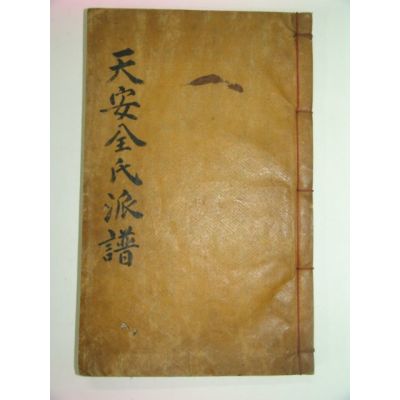 天安全氏派譜